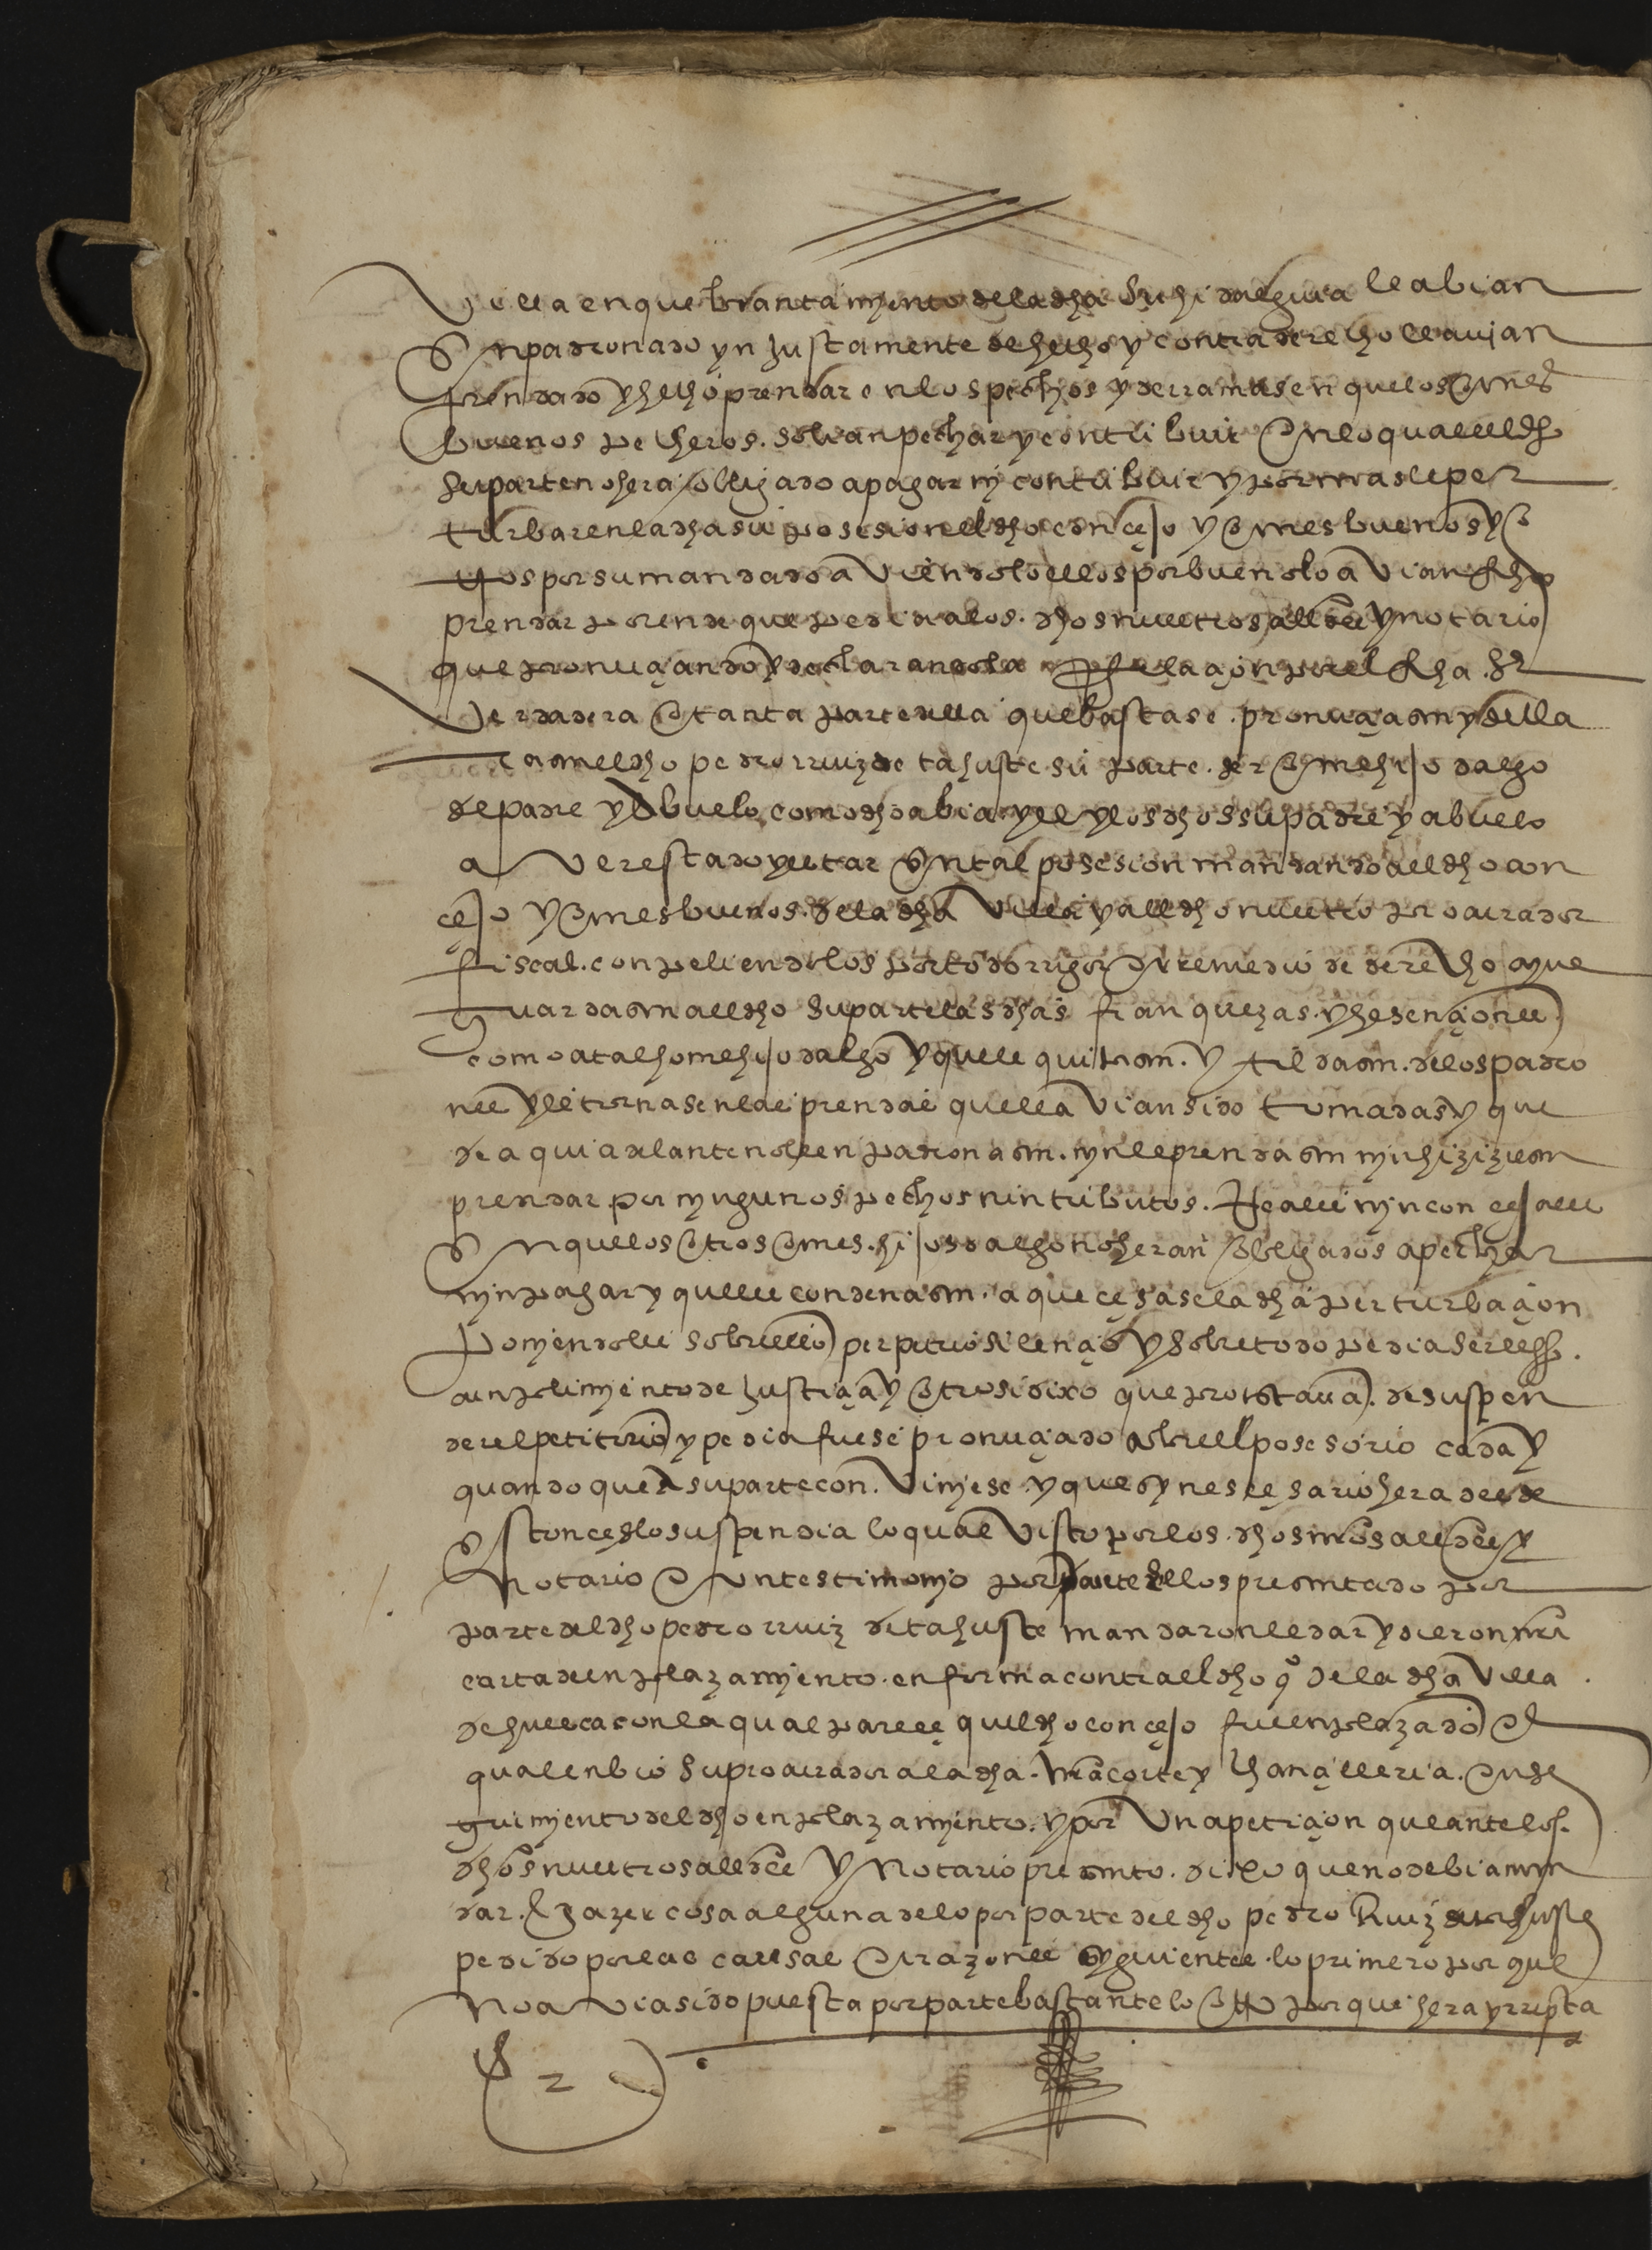 Villa en quebrantamyento de la dha su hidalguia le abian
enpadronado ynjustamente de hecho y contra derecho lle avian
prendado y hecho prendar en los pechos y derramas en que los omes
buenos pecheros solian pechar y contribuir en lo qual el dho
su parte no hera obligado a pagar ny contribuir y por mas le per
turbar en la dha su posesion el dho concejo y omes buenos y o
tros por su mandado aviendolo ellos por bueno lo avian fho
prendar por ende que pedia a los dhos nuestros allcdes y notario
que pronunçiando y declarando la Relaçion por el fha ser
verdadera o tanta parte della que bastase pronunçiasen y decla
rasen el dho pedro rruiz de tahuste su parte ser ome hijo dalgo
de padre y de abuelo como dho abia y el y los dhos su padre y abuelo
aver estado y estar en tal posesion mandando all dho con
cejo y omes buenos de la dha villa y all dho nuestro procurador
fiscal conpeliendolos por todo rrigor y rremedio de derecho a que
guardasen all dho su parte las dhas franquezas y hesençiones
como a tal home hijo dalgo y que le quitasen y tildasen de los padro
nes y le tornasen las prendas que le avian sido tomadas y que
de aqui adelante no le enpadronasen nyn le prendasen nyn hiziziesen
prendar por nyngunos pechos nin tributos Reales nyn concejales
en que los otros omes hijos dalgo no heran obligados a pechar
nyn pagar y que les condenasen a que çesase la dha perturbaçion
ponyendoles sobre ello perpetuo silençio y sobre todo pedia serle fho
cunplimyento de justiçia y otrosi dixo que protestava de suspen
der el petitorio y pedia fuese pronunçiado sobre el posesorio cada y
quando que a su parte conviniese y que sy nesçesario hera desde
estonçes lo suspendia lo qual visto por los dhos nros allcdes y
notario e un testimonyo por parte dellos presentado por
parte del dho pedro rruiz de tahuste mandaronle dar y dieron nra
carta de enplazamyento en forma contra el dho co de la dha villa
de huesca con la qual paresçe quel dho conçejo fue enplazado el
qual enbio su procurador a la dha nra corte y chançilleria en se
guimyento del dho enplazamyento y por una petiçion que ante los
dhos nuestros allcdes y notario presento dixo que no debian man
dar hazer cosa alguna de lo por parte del dho pedro Ruiz de tahuste
pedido por las causas e rrazones syguientes lo primero por que
no avia sido puesta por parte bastante lo otro por que hera ynepta